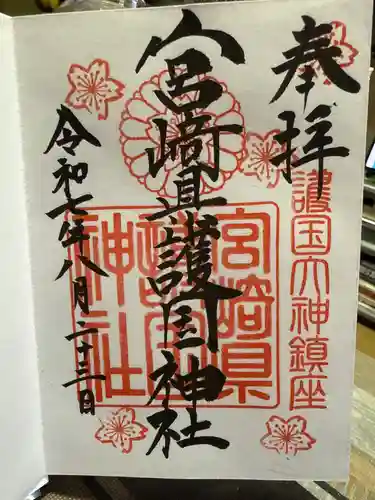 奉拝
護国大神鎮座
宮崎県護国神社
宮崎県護国神社
令和七年八月二十三日